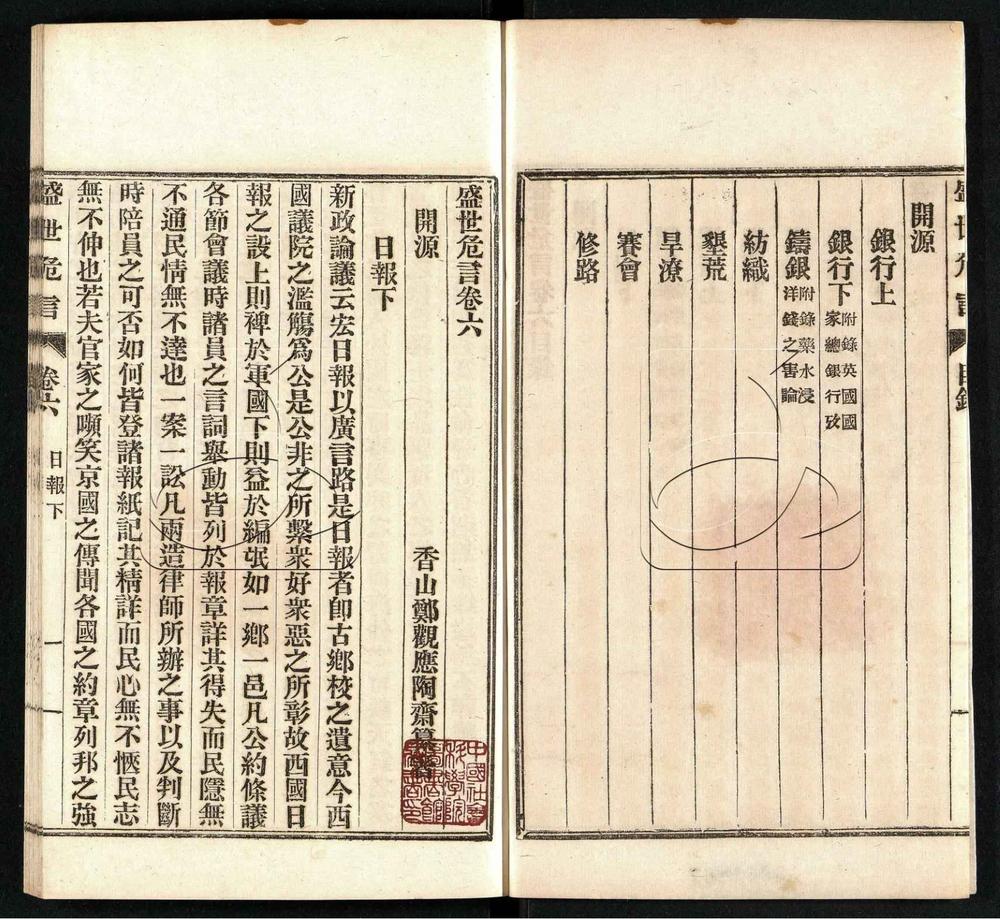 開源
銀行上
銀行下附錄英國國家總銀行攷
鑄銀附錄藥水浸洋錢之害論
紡織
墾荒
旱潦
賽會
修路
盛世危言卷六
開源
香山鄭觀應陶齋
日報下
新政論議云宏日報以廣言路是日報者卽古鄉校之遺意今西
國議院之濫觴爲公是公非之所繫衆好衆惡之所彰故西國日
報之設上則裨於軍國下則益於編氓如一鄉一邑凡公約條議
各節會議時諸員之言詞舉動皆列於報章詳其得失而民隱無
不通民情無不達也一案一訟凡兩造律師所辦之事以及判斷
時陪員之可否如何皆登諸報紙記其精詳而民心無不愜民志
無不伸也若夫官家之嚬笑京國之傳聞各國之約章列邦之強
盛世危言 卷六 日報下 一